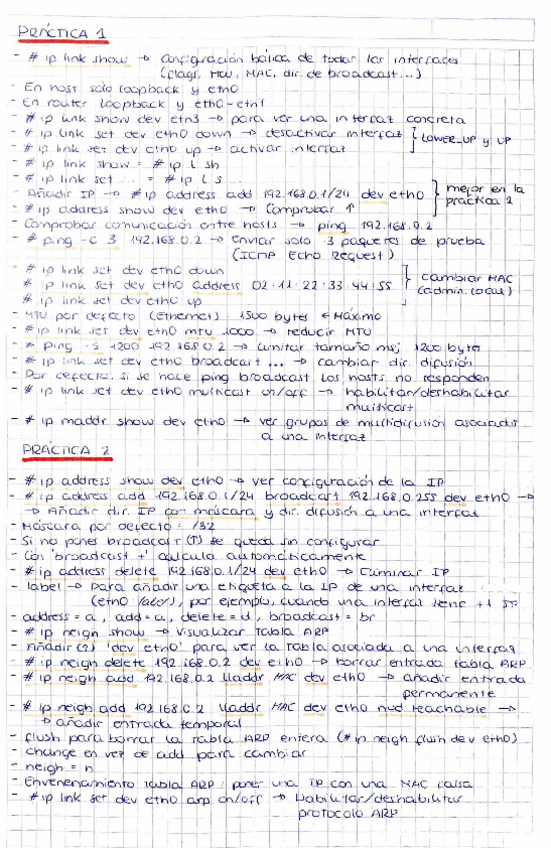 PRÁCTICA 1
- # ip link show → Configuración básica de todas las interfaces
(flags, MTU, MAC, dir. de broadcast...)
- En host solo loopback y eth0
- En router loopback y eth0-eth1
- # ip link show dev eth3 → para ver una interfaz concreta
- # ip link set dev eth0 down → desactivar interfaz } LOWER_UP y UP
- # ip link set dev eth0 up → activar interfaz
- # ip link show = # ip l sh
- # ip link set ... = # ip l s ...
- Añadir IP → # ip address add 192.168.0.1/24 dev eth0 } mejor en la práctica 2
- # ip address show dev eth0 → Comprobar ↑
- Comprobar comunicación entre hosts → ping 192.168.0.2
- # ping -c 3 192.168.0.2 → Enviar solo 3 paquetes de prueba
(ICMP Echo Request)
- # ip link set dev eth0 down
- # ip link set dev eth0 address 02:11:22:33:44:55 } cambiar MAC (admin. local)
- # ip link set dev eth0 up
- MTU por defecto (Ethernet): 1500 bytes ← Máximo
- # ip link set dev eth0 mtu 1000 → reducir MTU
- # ping -s 1200 192.168.0.2 → Limitar tamaño msj 1200 bytes
- # ip link set dev eth0 broadcast ... → cambiar dir. difusión
- Por defecto, si se hace ping broadcast los hosts no responden
- # ip link set dev eth0 multicast on/off → habilitar/deshabilitar
multicast
- # ip maddr show dev eth0 → ver grupos de multidifusión asociados
a una interfaz
PRÁCTICA 2
- # ip address show dev eth0 → ver configuración de la IP
- # ip address add 192.168.0.1/24 broadcast 192.168.0.255 dev eth0 →
→ Añadir dir. IP con máscara y dir. difusión a una interfaz
- Máscara por defecto: /32
- Si no pones broadcast (↑) se queda sin configurar
- Con 'broadcast +' calcula automáticamente
- # ip address delete 192.168.0.1/24 dev eth0 → Eliminar IP
- label → Para añadir una etiqueta a la IP de una interfaz
(eth0:label), por ejemplo, cuando una interfaz tiene +1 IP
- address = a, add = a, delete = d, broadcast = br
- # ip neigh show → Visualizar tabla ARP
- Añadir (2) 'dev eth0' para ver la tabla asociada a una interfaz
- # ip neigh delete 192.168.0.2 dev eth0 → borrar entrada tabla ARP
- # ip neigh add 192.168.0.2 lladdr MAC dev eth0 → añadir entrada
permanente
- # ip neigh add 192.168.0.2 lladdr MAC dev eth0 nud reachable →
→ añadir entrada temporal
- flush para borrar la tabla ARP entera (# ip neigh flush dev eth0)
- change en vez de add para cambiar
- neigh = n
- Envenenamiento tabla ARP: poner una IP con una MAC falsa
- # ip link set dev eth0 arp on/off → Habilitar/deshabilitar
protocolo ARP